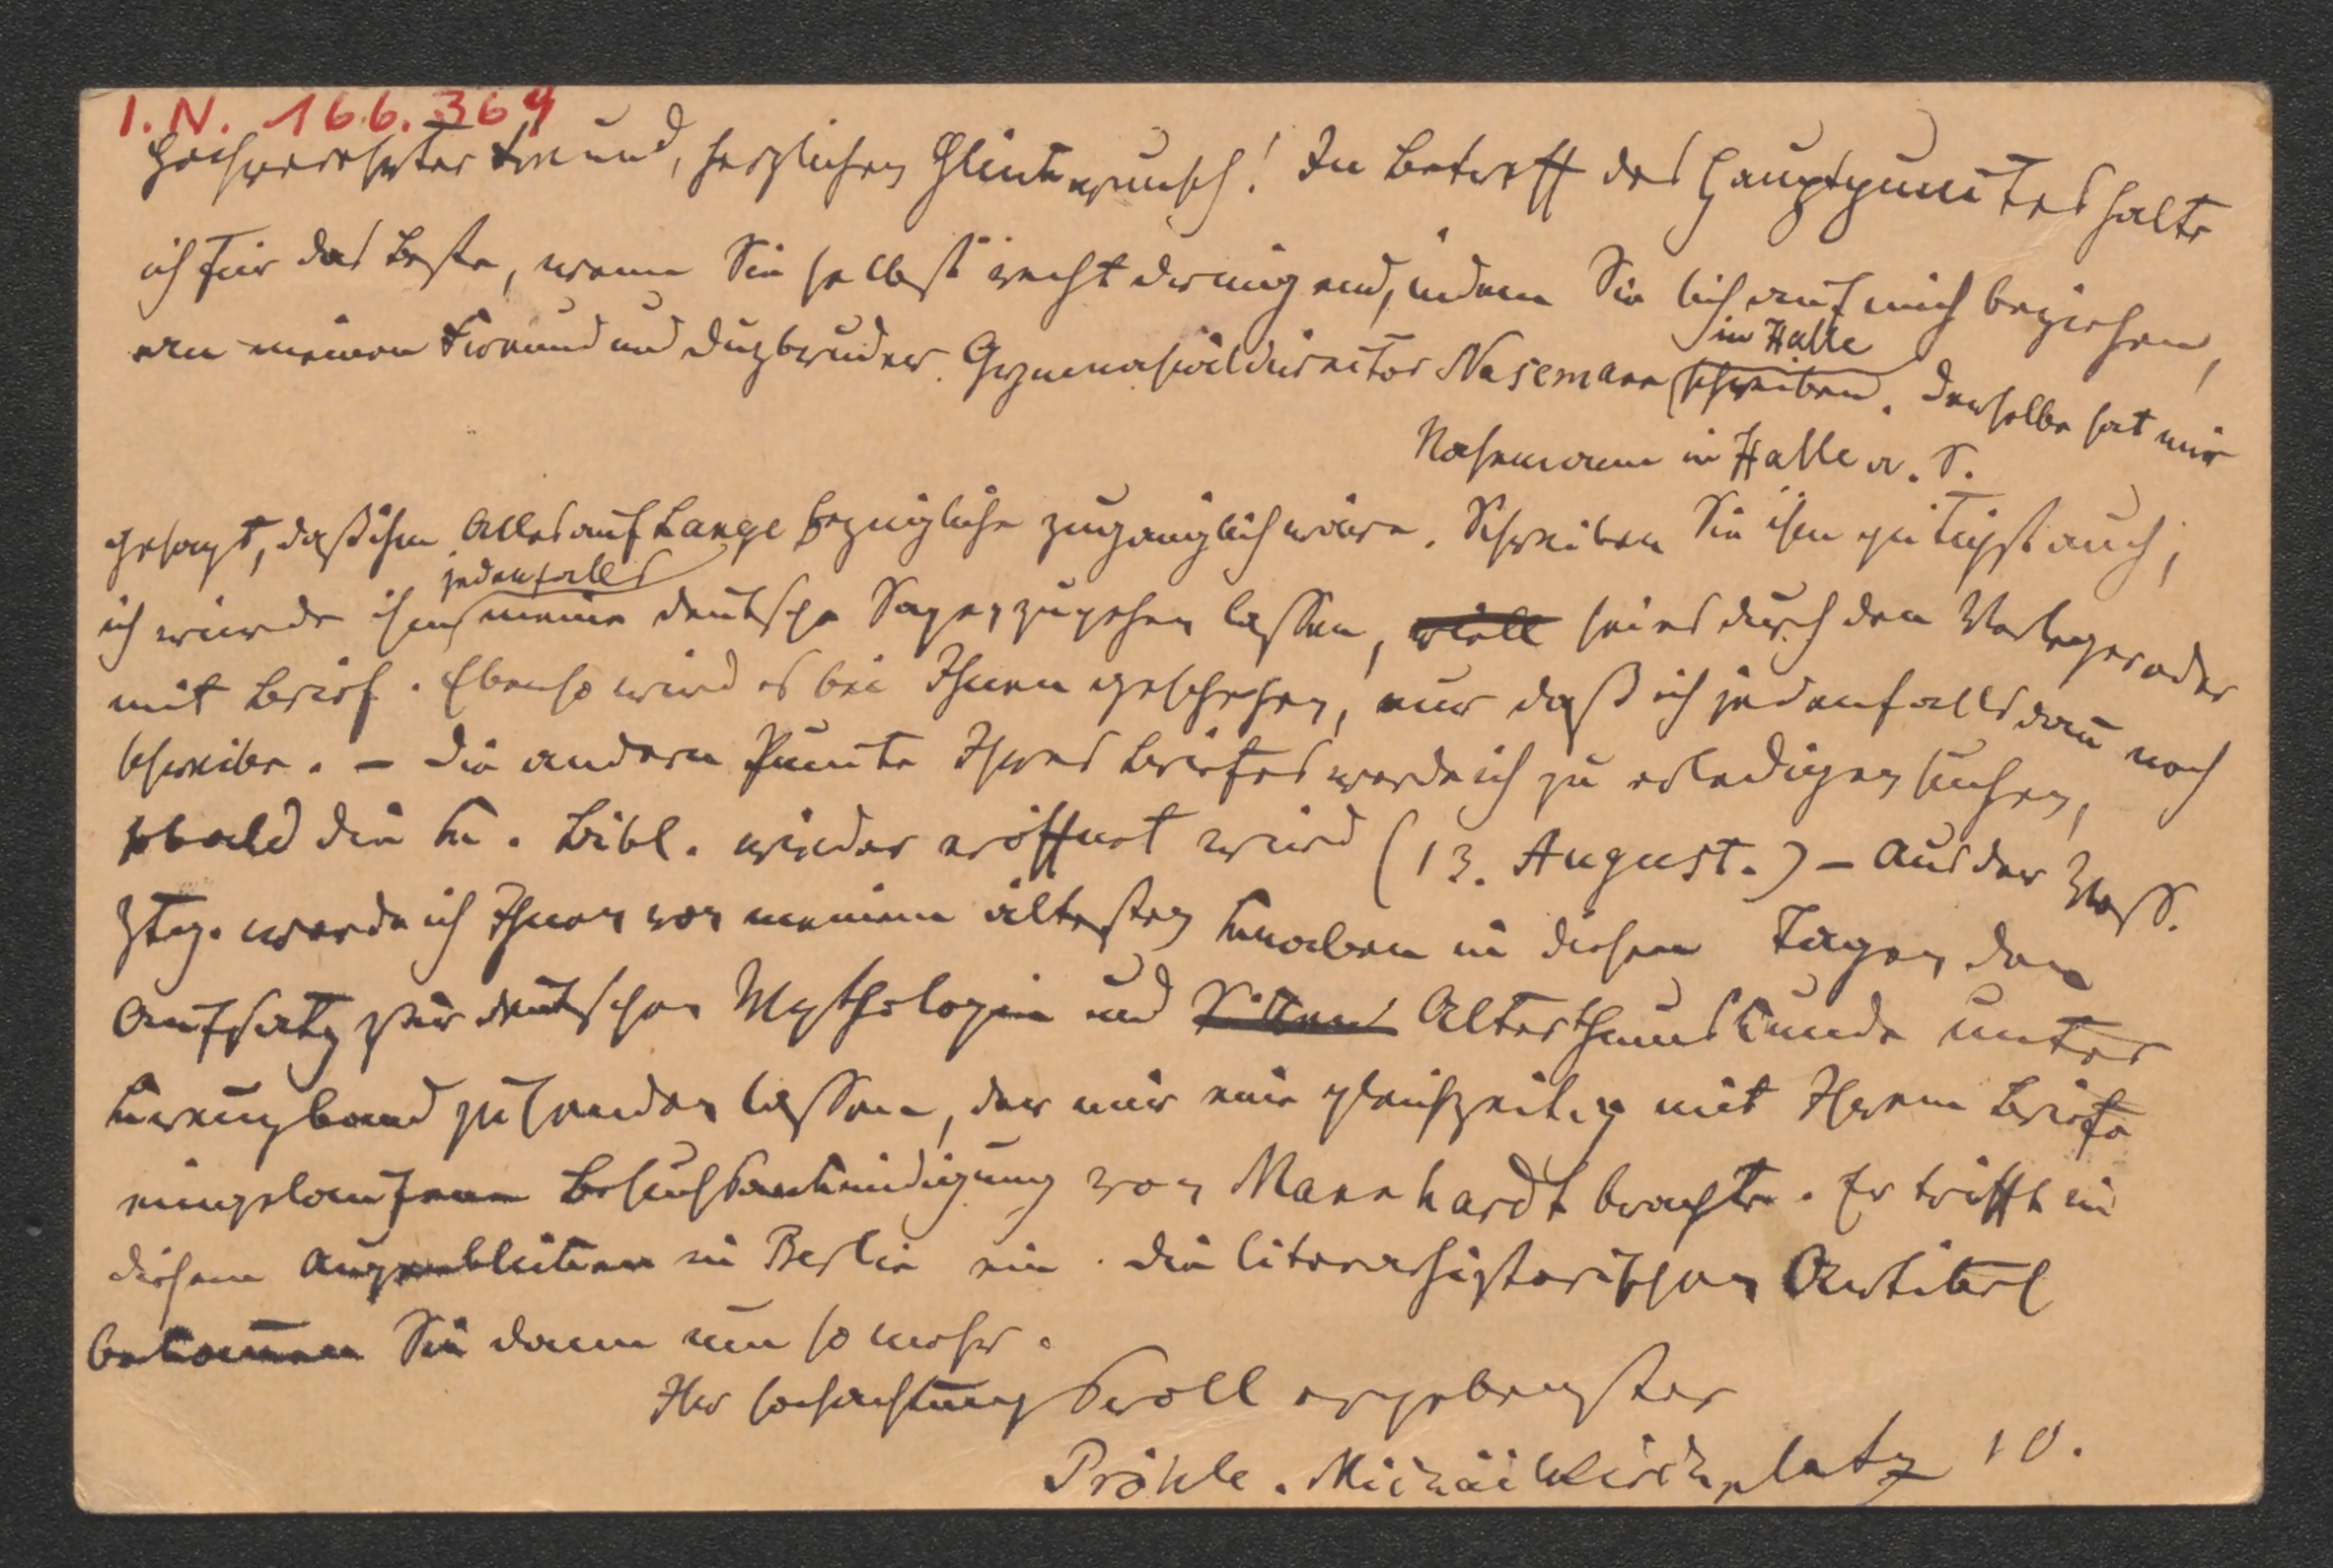 I.N. 166.364
Hochverehrter Freund, herzlichen Glückwunsch! In Betreff des Hauptpunctes halte
ich für das Beste, wenn Sie selbst recht dringend, indem Sie sich auf mich beziehen,
an meinen Freund und Duzbruder Gymnasialdirector Nasemann schreiben. Derselbe hat mir
in Halle
Nasemann in Halle a. S.
gesagt, daß ihm Alles auf Lange bezügliche zugänglich wäre. Schreiben Sie ihm gütigst auch,
jedenfalls
ich würde ihm meine deutsche Sagen zugehen lassen, viell sei es durch den Verleger oder
mit Brief. Ebenso wird es bei Ihnen geschehen, nur daß ich jedenfalls dan̄ noch
schreibe. – Die andern Puncte Ihres Briefes werde ich zu erledigen suchen,
sobald die K. Bibl. wieder eröffnet wird (13. August.) – Aus der Voss.
Ztg. werde ich Ihnen von meinem ältesten Knaben in diesen Tagen den
Aufsatz zur deutschen Mythologie und Sitten Alterthumskunde unter
Kreuzband zusenden lassen, der mir eine gleichzeitig mit Ihrem Briefe
eingelaufene Besuchsankündigung von Mannhardt brachte. Er trifft in
diesem Augenblicke in Berlin ein. Die literarhistorischen Artikel
bekom̄en Sie dann um so mehr.
Ihr hochachtungsvoll ergebenster
Pröhle. Michaelkirchplatz 10.